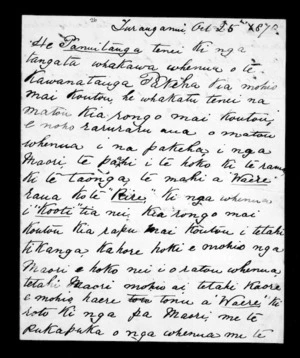 Turanganui Oct 25th 1875
He Panuitanga tenei ki nga
tangata whakawa whenua o te
Kawanatanga Pakeha kia mohio
mai koutou, he whakatu tenei na
matou kia rongo mai koutou,
e noho raruraru ana o matou
whenua i na pakeha, i nga
Maori te pahi i te hoko ki te rama
ki te taonga, te mahi a Waere
raua ko te "Pire," ki nga whenua
i "Kooti" tia nei, kia rongo mai
koutou kia rapu mai koutou i tetahi
tikanga, kahore hoki e mohio nga
Maori e hoko nei i o ratou whenua,
tetahi Maori mohio ai tetahi kaore
e mohio, haere tonu a "Waere" ki
roto ki nga pa Maori, me te
pukapuka o nga whenua me te